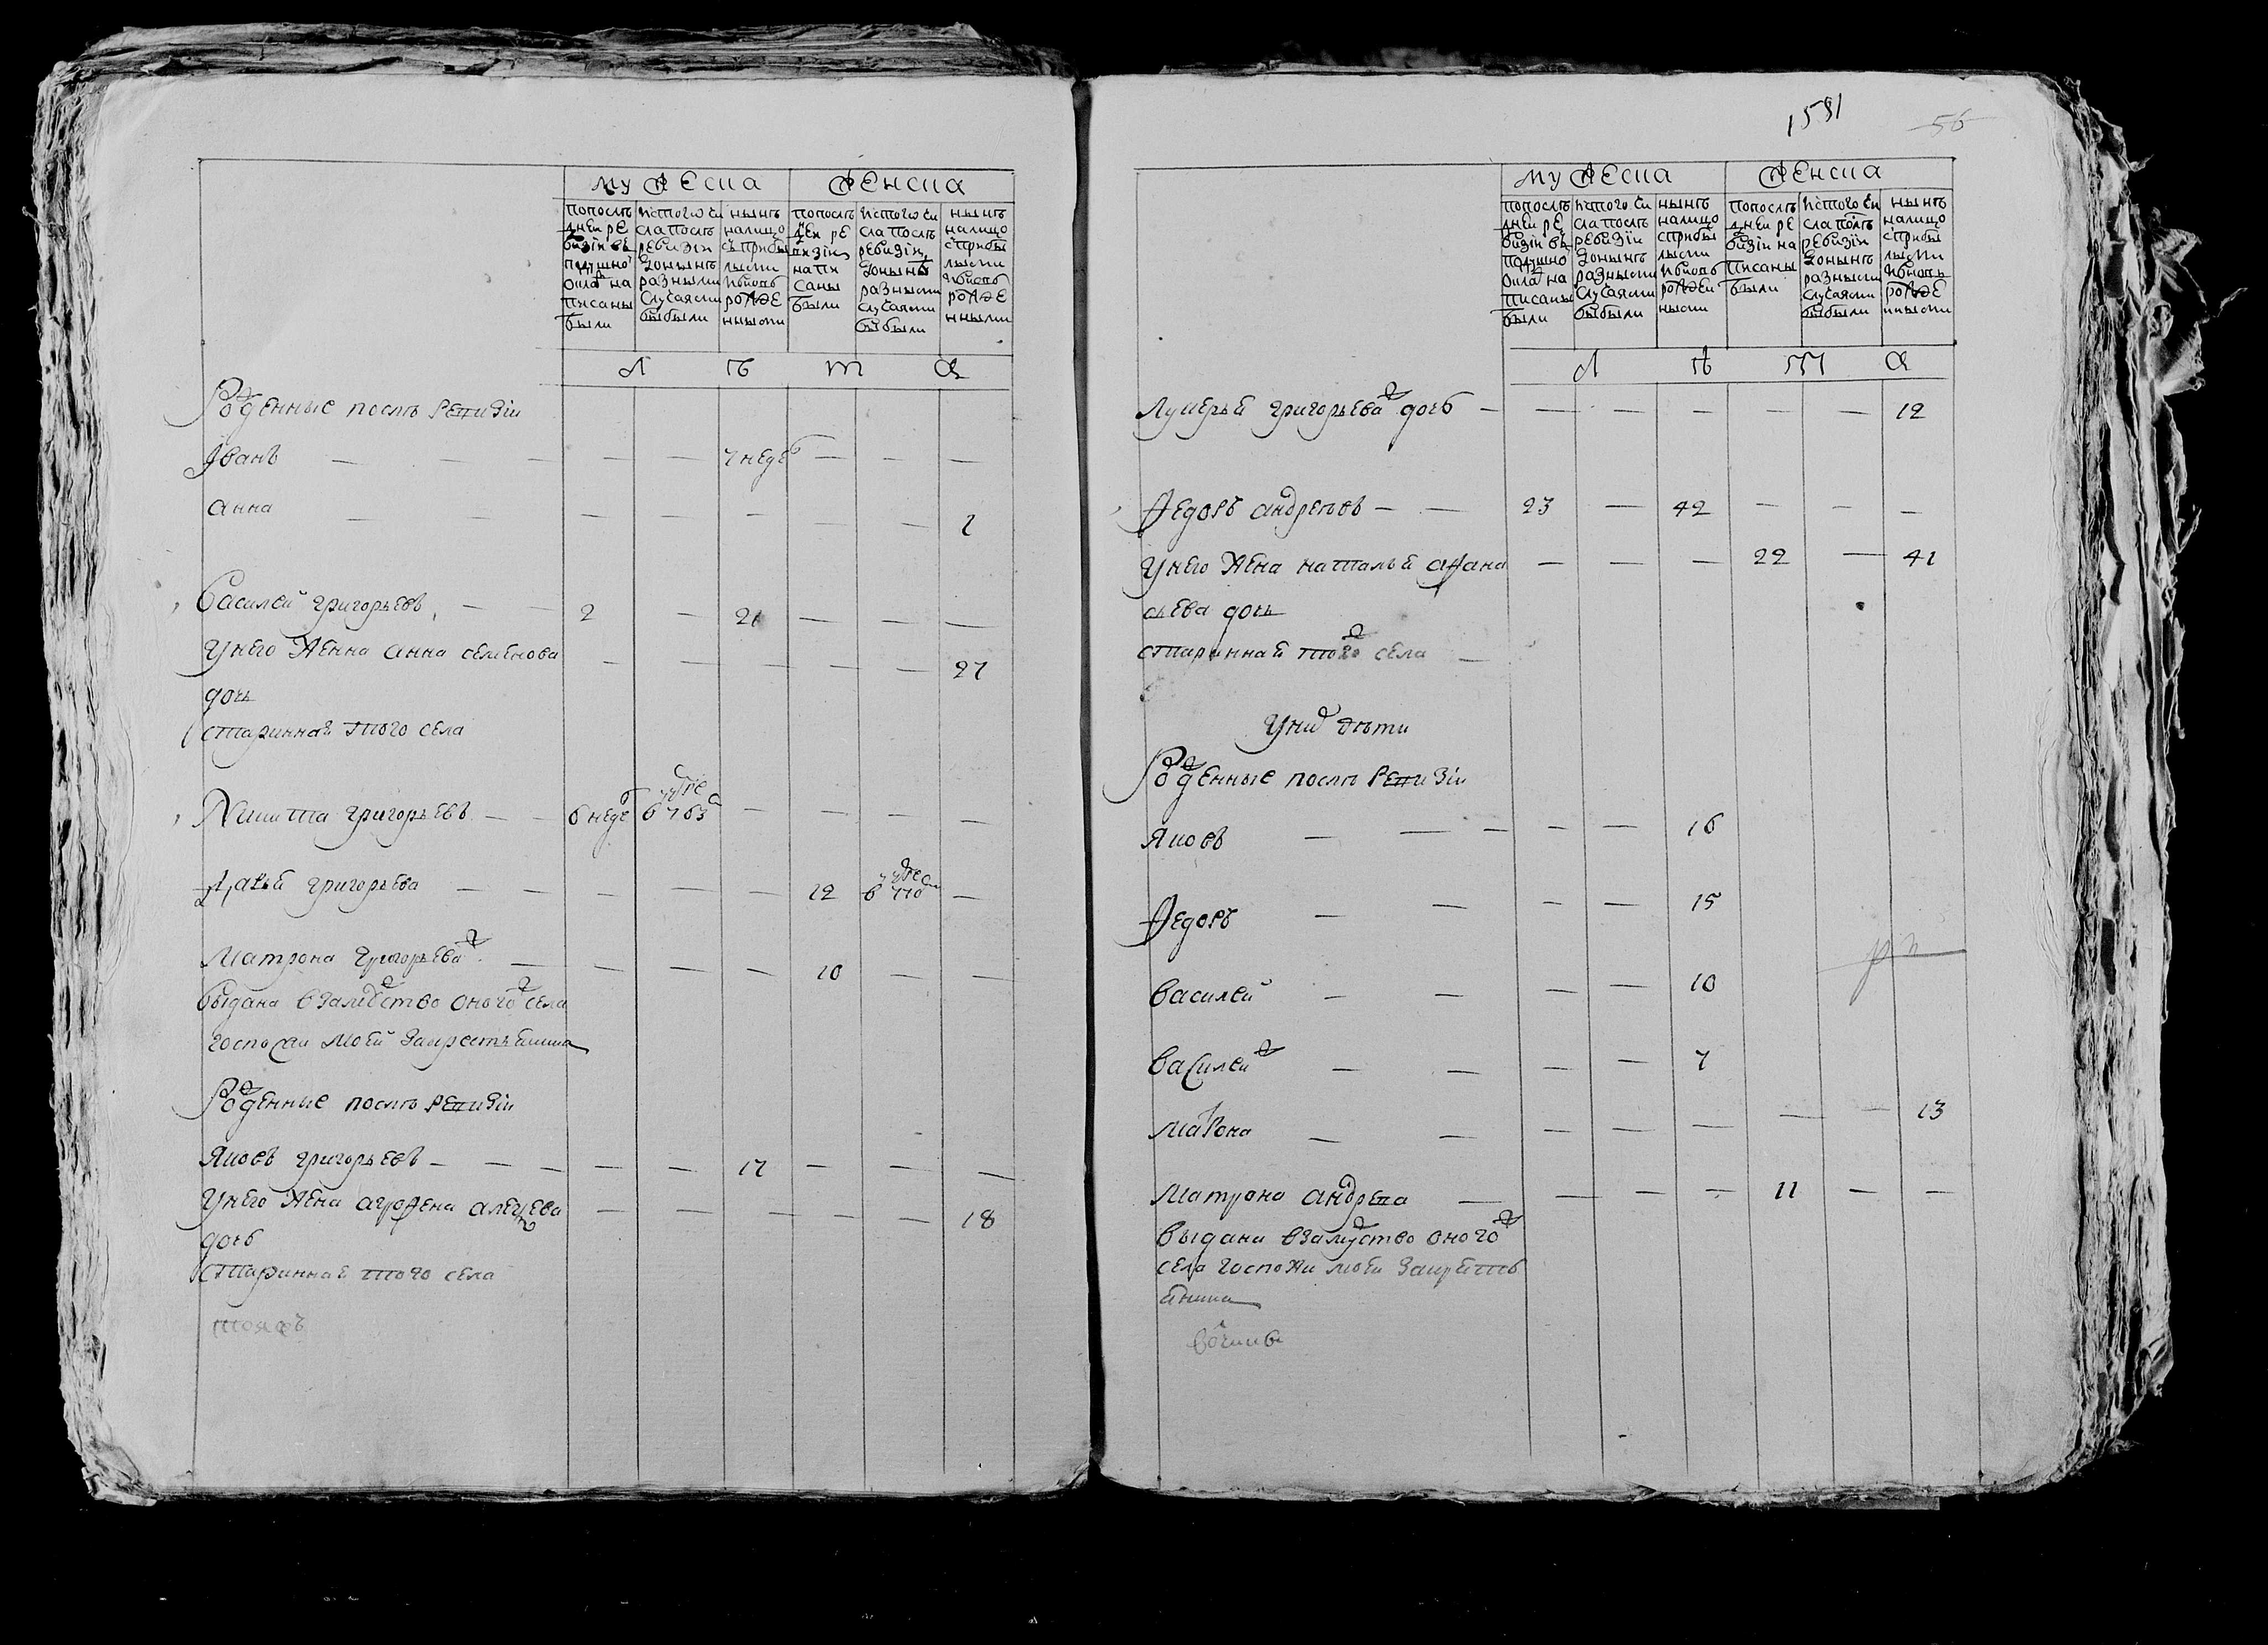 мужеска женска
попослѣ дней ре визіи вѣ подушно окладѣ на писаны были
истого чи сла послѣ ревизіи до нынѣ разными случаями выбыли
нынѣ налицо с прибы лыми и вновь рожде нными
попослѣ дней ре визіи на пи саны были
истого чи сла послѣ ревизіи до нынѣ разными случаями выбыли
нынѣ налицо с прибы лыми и вновь рожде нными
л ѣ т а
Рожденные послѣ ревизіи
Іванъ — — — — — 7 неде — — —
анна — — — — — — — 2
Василей григорьевъ — — 2 — 21 — — —
У него жена анна семенова — — — — — 27
дочь
старинная того села
Никита григорьевъ — — 6 неде в 763 — — — —
Дарья григорьева — — — — — 12 в 770 —
Матрона григорьева — — — — 10 — —
выдана взамужство оного села
госпожи моей
Рожденные послѣ ревизіи
Яковъ григорьевъ — — — — — 17 — — —
У него жена агрофена — — — — — — 18
дочь
старинная того села
1531 56
мужеска женска
попослѣ дней ре визіи вѣ подушно окладѣ на писаны были
истого чи сла послѣ ревизіи до нынѣ разными случаями выбыли
нынѣ налицо с прибы лыми и вновь рожден ными
попослѣ дней ре визіи на писаны были
истого чи сла послѣ ревизіи до нынѣ разными случаями выбыли
нынѣ налицо с прибы лыми и вновь рожде нными
л ѣ т а
Лукерья григорьева дочь — — — — — — 12
Федоръ андреевъ — — 23 — 42 — — —
У него жена наталья афана — — — 22 — 41
сьева дочь
старинная того села —
У них дѣти
Рожденные послѣ ревизіи
Яковъ — — — — — 16
Федоръ — — — — 15
василей — — — — 10
василей — — — — 7
матрона — — — — — — — 13
Матрона андреева — — — — 11 — —
выдана взамужство оного
села госпожи моей